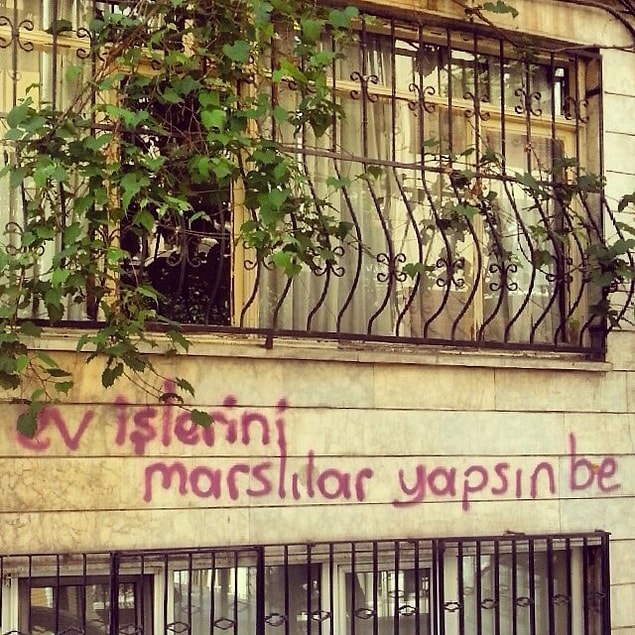 ev işlerini
marslılar yapsın be